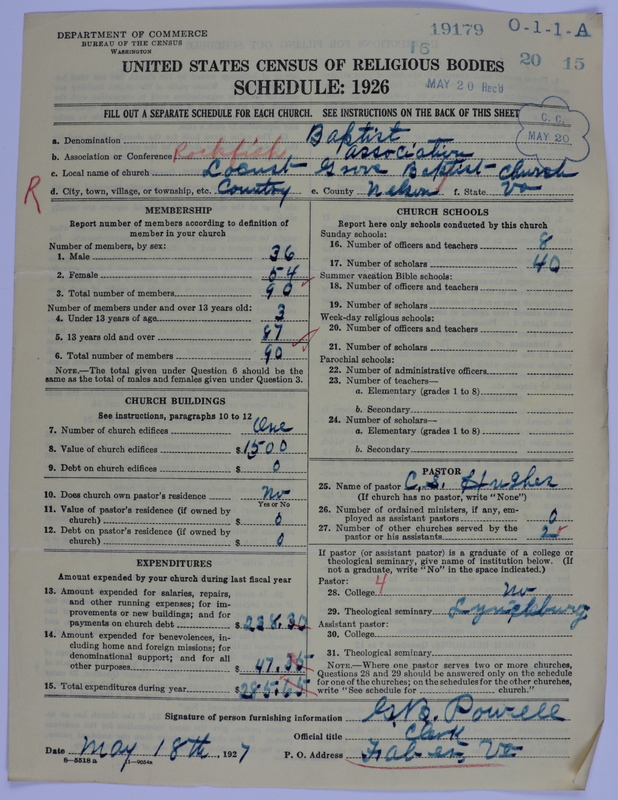 19179 O-1-1-A
DEPARTMENT OF COMMERCE
BUREAU OF THE CENSUS
WASHINGTON
16
UNITED STATES CENSUS OF RELIGIOUS BODIES 20 15
SCHEDULE: 1926 MAY 20 Rec'd
FILL OUT A SEPARATE SCHEDULE FOR EACH CHURCH. SEE INSTRUCTIONS ON THE BACK OF THIS SHEET
C. C.
MAY 20
a. Denomination Baptist
b. Association or Conference Rockfish association
c. Local name of church Locust Grove Baptist Church
R d. City, town, village, or township, etc. Country e. County Nelson f. State Va
MEMBERSHIP
Report number of members according to definition of
member in your church
Number of members, by sex:
1. Male 36
2. Female 54
3. Total number of members 90
Number of members under and over 13 years old:
4. Under 13 years of age 3
5. 13 years old and over 87
6. Total number of members 90
NOTE.—The total given under Question 6 should be the
same as the total of males and females given under Question 3.
CHURCH BUILDINGS
See instructions, paragraphs 10 to 12
7. Number of church edifices One
8. Value of church edifices $1500
9. Debt on church edifices $ 0
10. Does church own pastor's residence No
Yes or No
11. Value of pastor's residence (if owned by
church) $ 0
12. Debt on pastor's residence (if owned by
church) $ 0
EXPENDITURES
Amount expended by your church during last fiscal year
13. Amount expended for salaries, repairs,
and other running expenses; for im-
provements or new buildings; and for
payments on church debt $ 238.30
14. Amount expended for benevolences, in-
cluding home and foreign missions; for
denominational support; and for all
other purposes $ 47.35
15. Total expenditures during year $ 285.65
CHURCH SCHOOLS
Report here only schools conducted by this church
Sunday schools:
16. Number of officers and teachers 8
17. Number of scholars 40
Summer vacation Bible schools:
18. Number of officers and teachers
19. Number of scholars
Week-day religious schools:
20. Number of officers and teachers
21. Number of scholars
Parochial schools:
22. Number of administrative officers
23. Number of teachers—
a. Elementary (grades 1 to 8)
b. Secondary
24. Number of scholars—
a. Elementary (grades 1 to 8)
b. Secondary
PASTOR
25. Name of pastor C. S. Hughes
(If church has no pastor, write "None")
26. Number of ordained ministers, if any, em-
ployed as assistant pastors 0
27. Number of other churches served by the
pastor or his assistants 2
If pastor (or assistant pastor) is a graduate of a college or
theological seminary, give name of institution below. (If
not a graduate, write "No" in the space indicated.)
Pastor:
28. College 4 No
29. Theological seminary Lynchburg
Assistant pastor:
30. College
31. Theological seminary
NOTE.—Where one pastor serves two or more churches,
Questions 28 and 29 should be answered only on the schedule
for one of the churches; on the schedules for the other churches,
write "See schedule for church."
Signature of person furnishing information Powell
Official title Clerk
Date May 18th, 1927 P. O. Address Faber, Va
8—5518 a 1—9054a